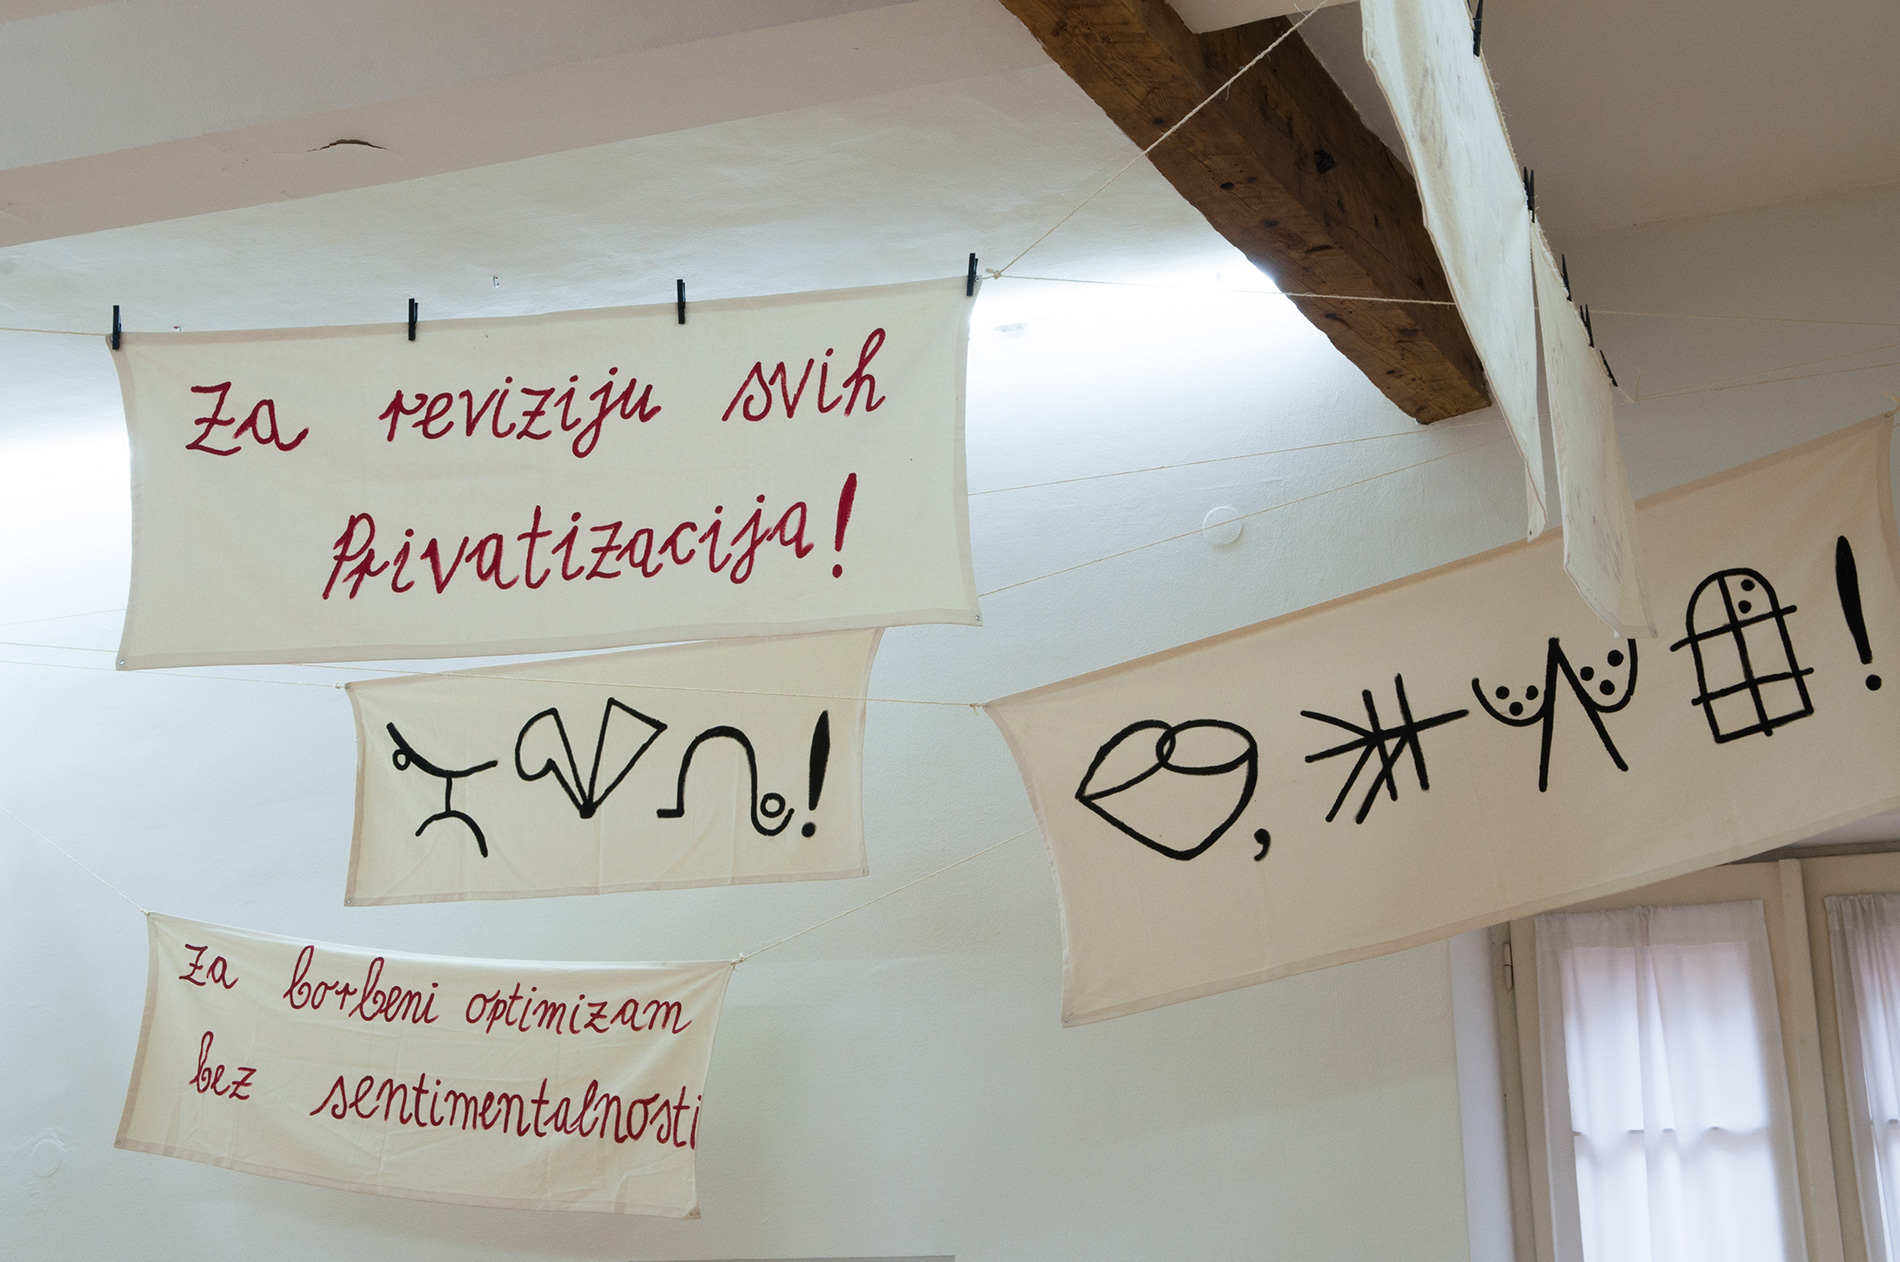 Za reviziju svih
Privatizacija!
Za borbeni optimizam
bez sentimentalnosti